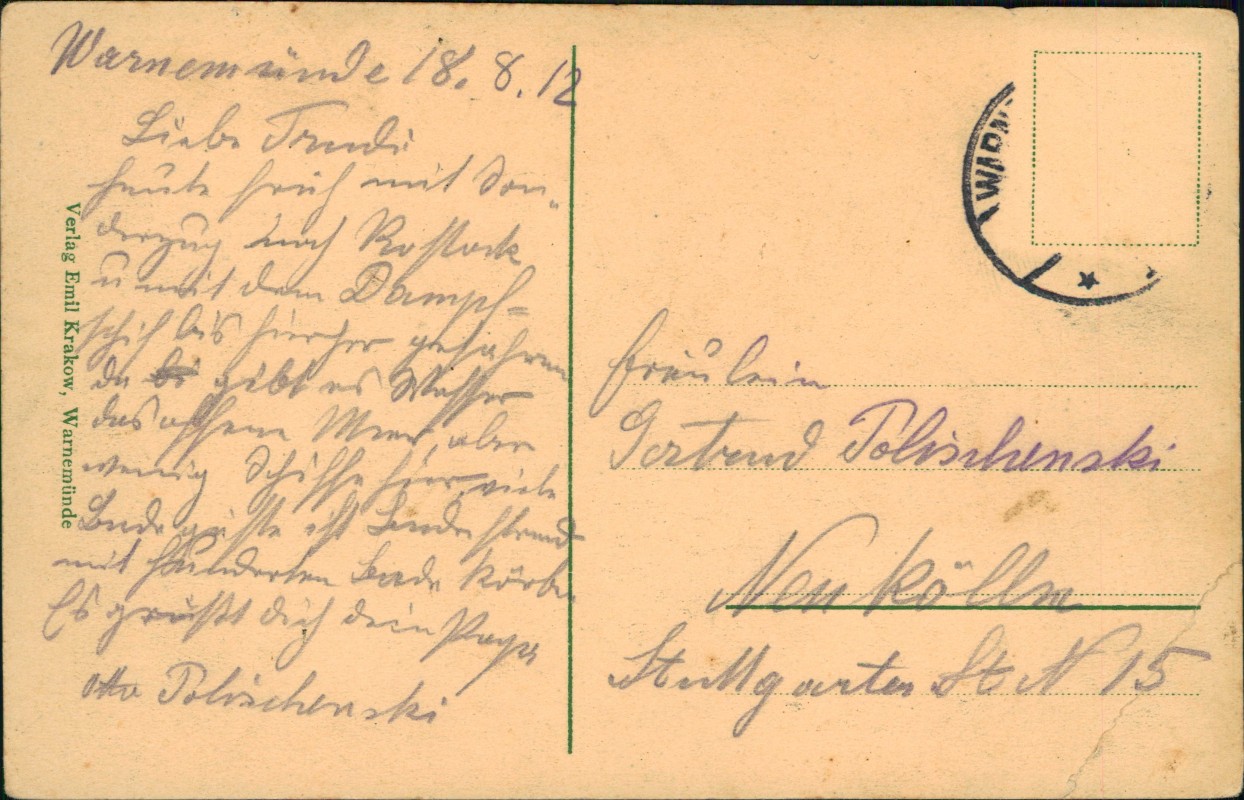 Warnemünde 18. 8. 12
Liebe Trudi
heute früh mit Son-
derzug nach Rostock
u mit dem Dampf=
schif bis hierher gefahren
da gibt es Wasser
das offene Meer, aber
wenig Schiffe hier, viele
Badegäste ist Badestrand
mit hunderten Bade Körbe.
Es grüßt dich dein Papa
Otto Polischenski
Verlag Emil Krakow, Warnemünde
WARN
Fräulein
Gertrud Polischenski
Neu Kölln
Stuttgarter St N 15